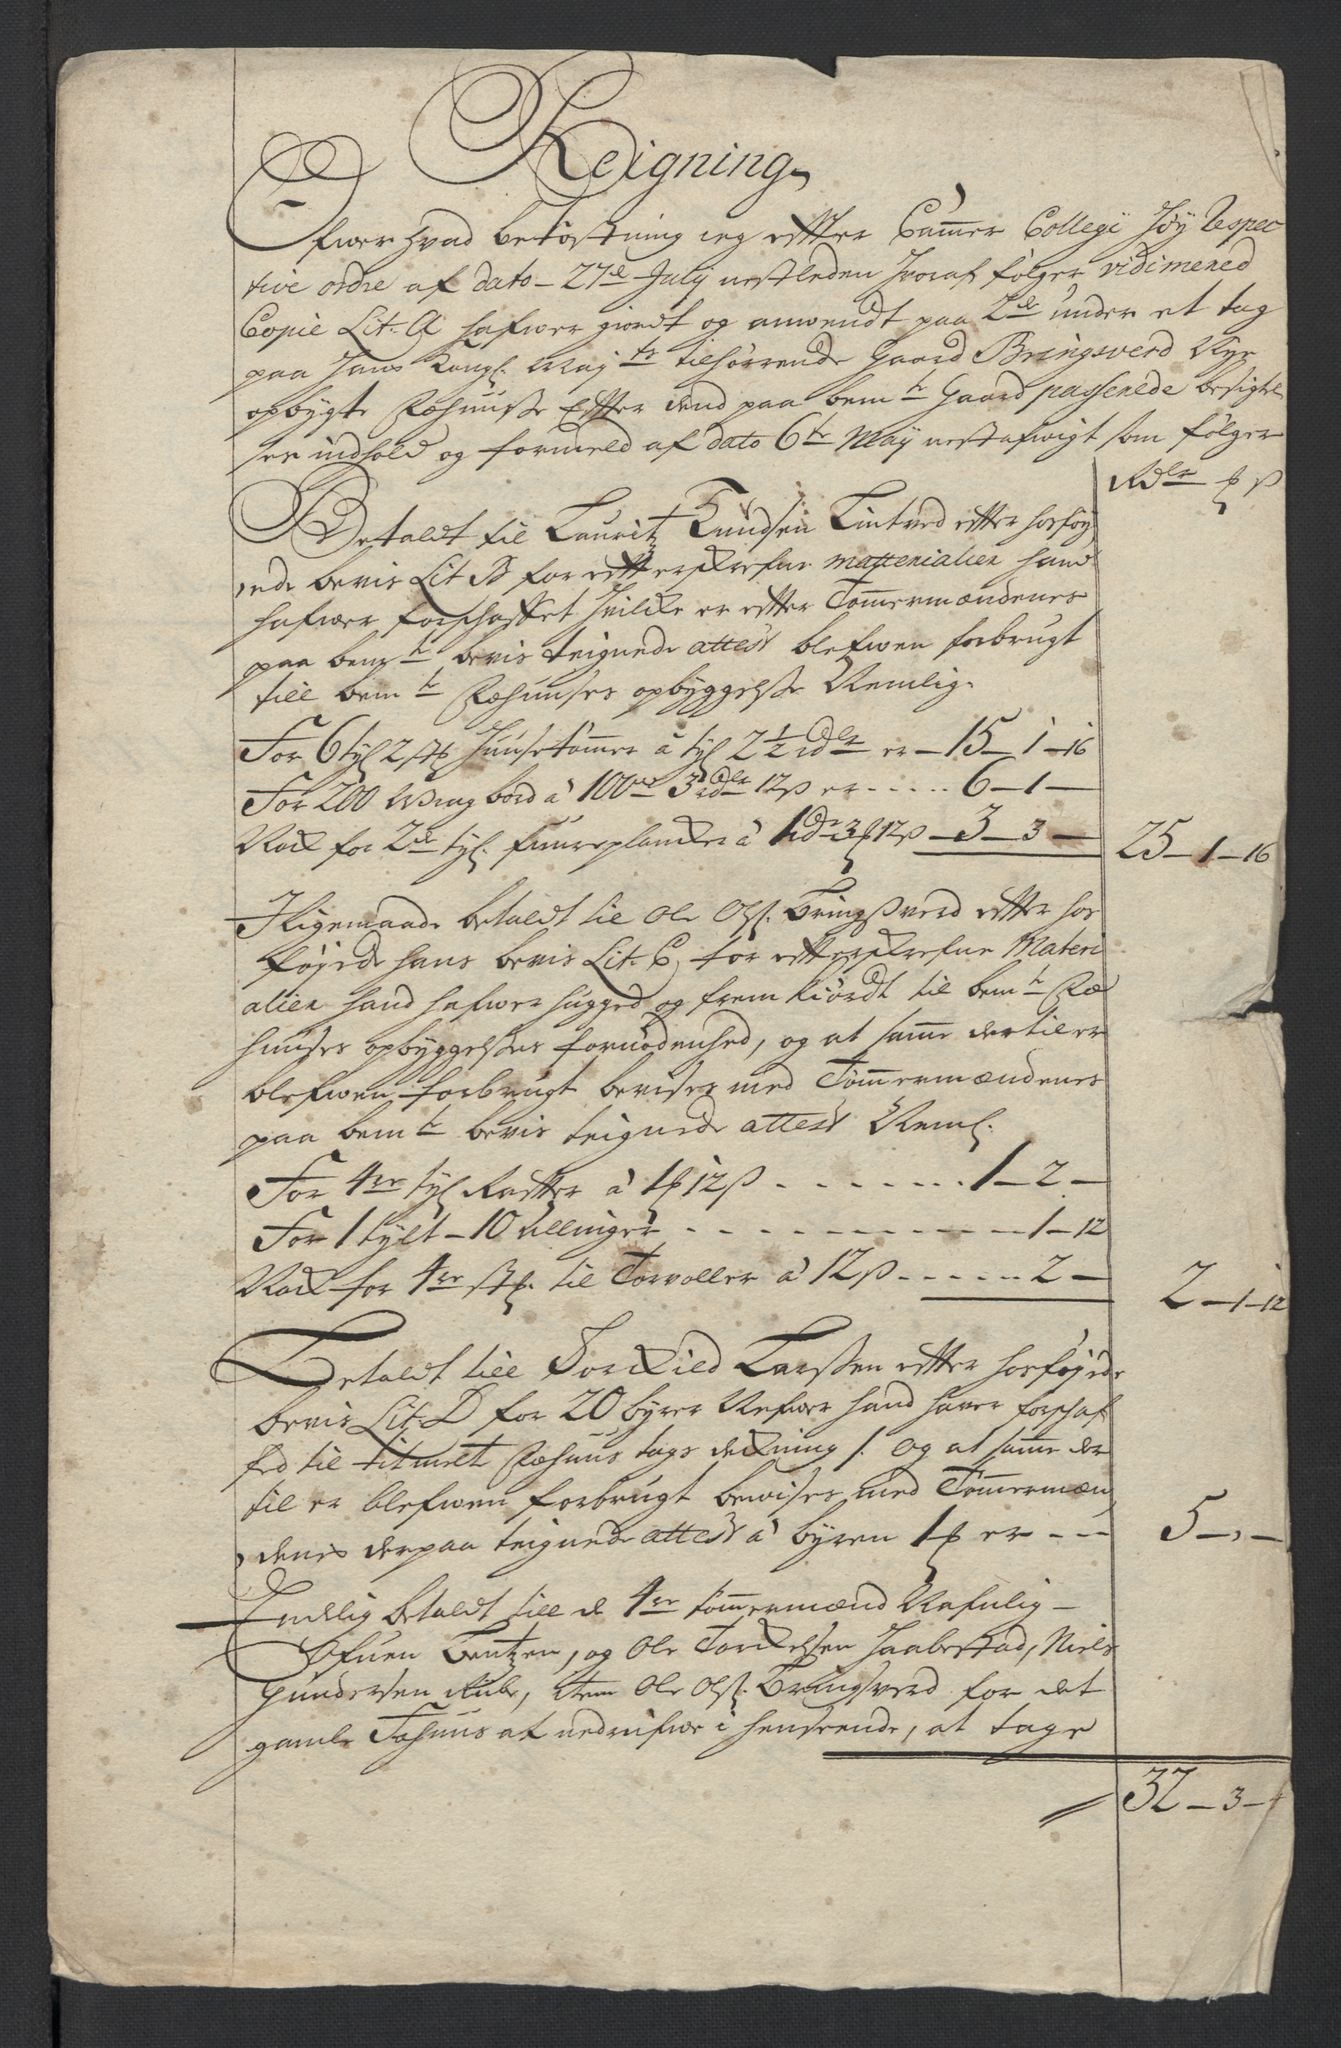 Reigning
Ofwer hvad bekostning ieg efter Cammer Collegi Høy Respec
tive ordre af dato 27de July nestleden hvoraf følger vidimered
Copie Lit: A hafwer giordt og anwendt paa 2de under et tag
paa Hans Kongl: May:ts tilhørrende Gaard Bringsverd Nye
opbygte Fæhuusse Efter dend paa bemte Gaard passerede besigtel
ses indhold og formeld af dato 6te May nestafwigt som følger
Rdlr ß
Betaldt til Lauritz Knudsen Lintved efter hosføy
ede bevis Lit B for efterskrefne matterialier hand
hafwer forschaffet hvilke er efter Tømmermændenes
paa bemte bevis teignede attest blefwen forbrugt
till bemte Fæhuuses opbyggelsse Nemlig
For 6 tyl 2 st Huusetømmer á tyl 2½ rdlr er 15 - 1 - 16
For 200 Wrag bord á 100de 3 rdlr 12 ß er 6 - 1 -
Nok for 2de tyl. fuureplanker á 1 rdr 3 12 ß 3 - 3 - 25 - 1 - 16
Ligemaade betaldt til Ole Ols: Bringsverd efter hos
føyede hans bevis Lit: C, for efterskrefne Materi
alier hand hafwer hugged og frem kiørdt til bemte Fæ
huuses opbyggelses fornødenhed, og at samme dertil er
blefwen forbrugt bevises med Tømmermændenes
paa bemte bevis teignede attest Neml.
For 4re tyl Raffter á 1 12 ß 1 - 2 -
For 1 tylt - 10 allinger 1 - 12
Nok for 4re st. til Torvoller á 12 ß 2 - 2 - 1 - 12
Betaldt till Torkild Larssen efter hosføyede
bevis Lit: D for 20 byrer Nefwer hand haver forschaf
fed til titmelt Fæhuus tags dekning /: og at samme der
til er blefwen forbrugt bewises med Tømmermæn
denes derpaa teignede attest á byren 1 er 5 - -
Endelig betaldt till de 4re tømmermænd Nafnlig
Ofuen Bentzen, og Ole Torkelsen Haabestad, Niels
Gundersen Rube, item Ole Ols: Bringsverd for det
gamle Fæhuus at nedrifwe i henseende, at tage
32 - 3 - 4